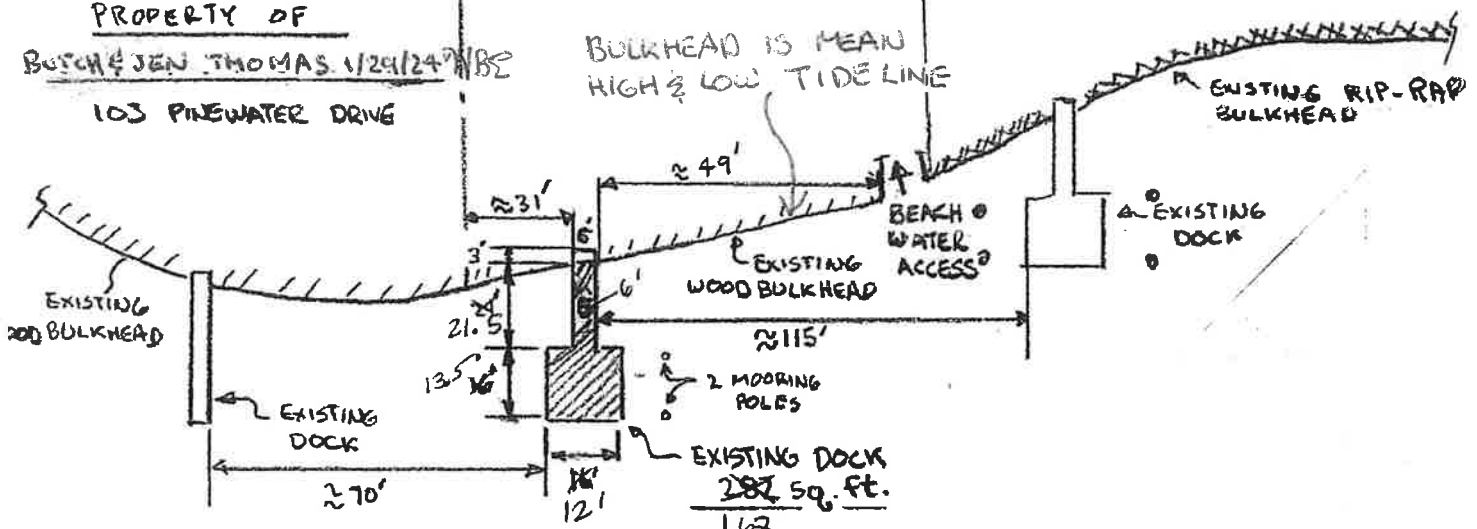 PROPERTY OF
BUTCH & JEN THOMAS 1/29/24
103 PINEWATER DRIVE
BULKHEAD IS MEAN
HIGH & LOW TIDE LINE
EXISTING RIP-RAP
BULKHEAD
≈ 49'
≈31'
6'
3'
BEACH
WATER
ACCESS
EXISTING
DOCK
EXISTING
WOOD BULKHEAD
EXISTING
BULKHEAD
6'
21.5
≈115'
13.5
16'
2 MOORING
POLES
EXISTING
DOCK
EXISTING DOCK
282 sq. ft.
≈70'
16'
12'